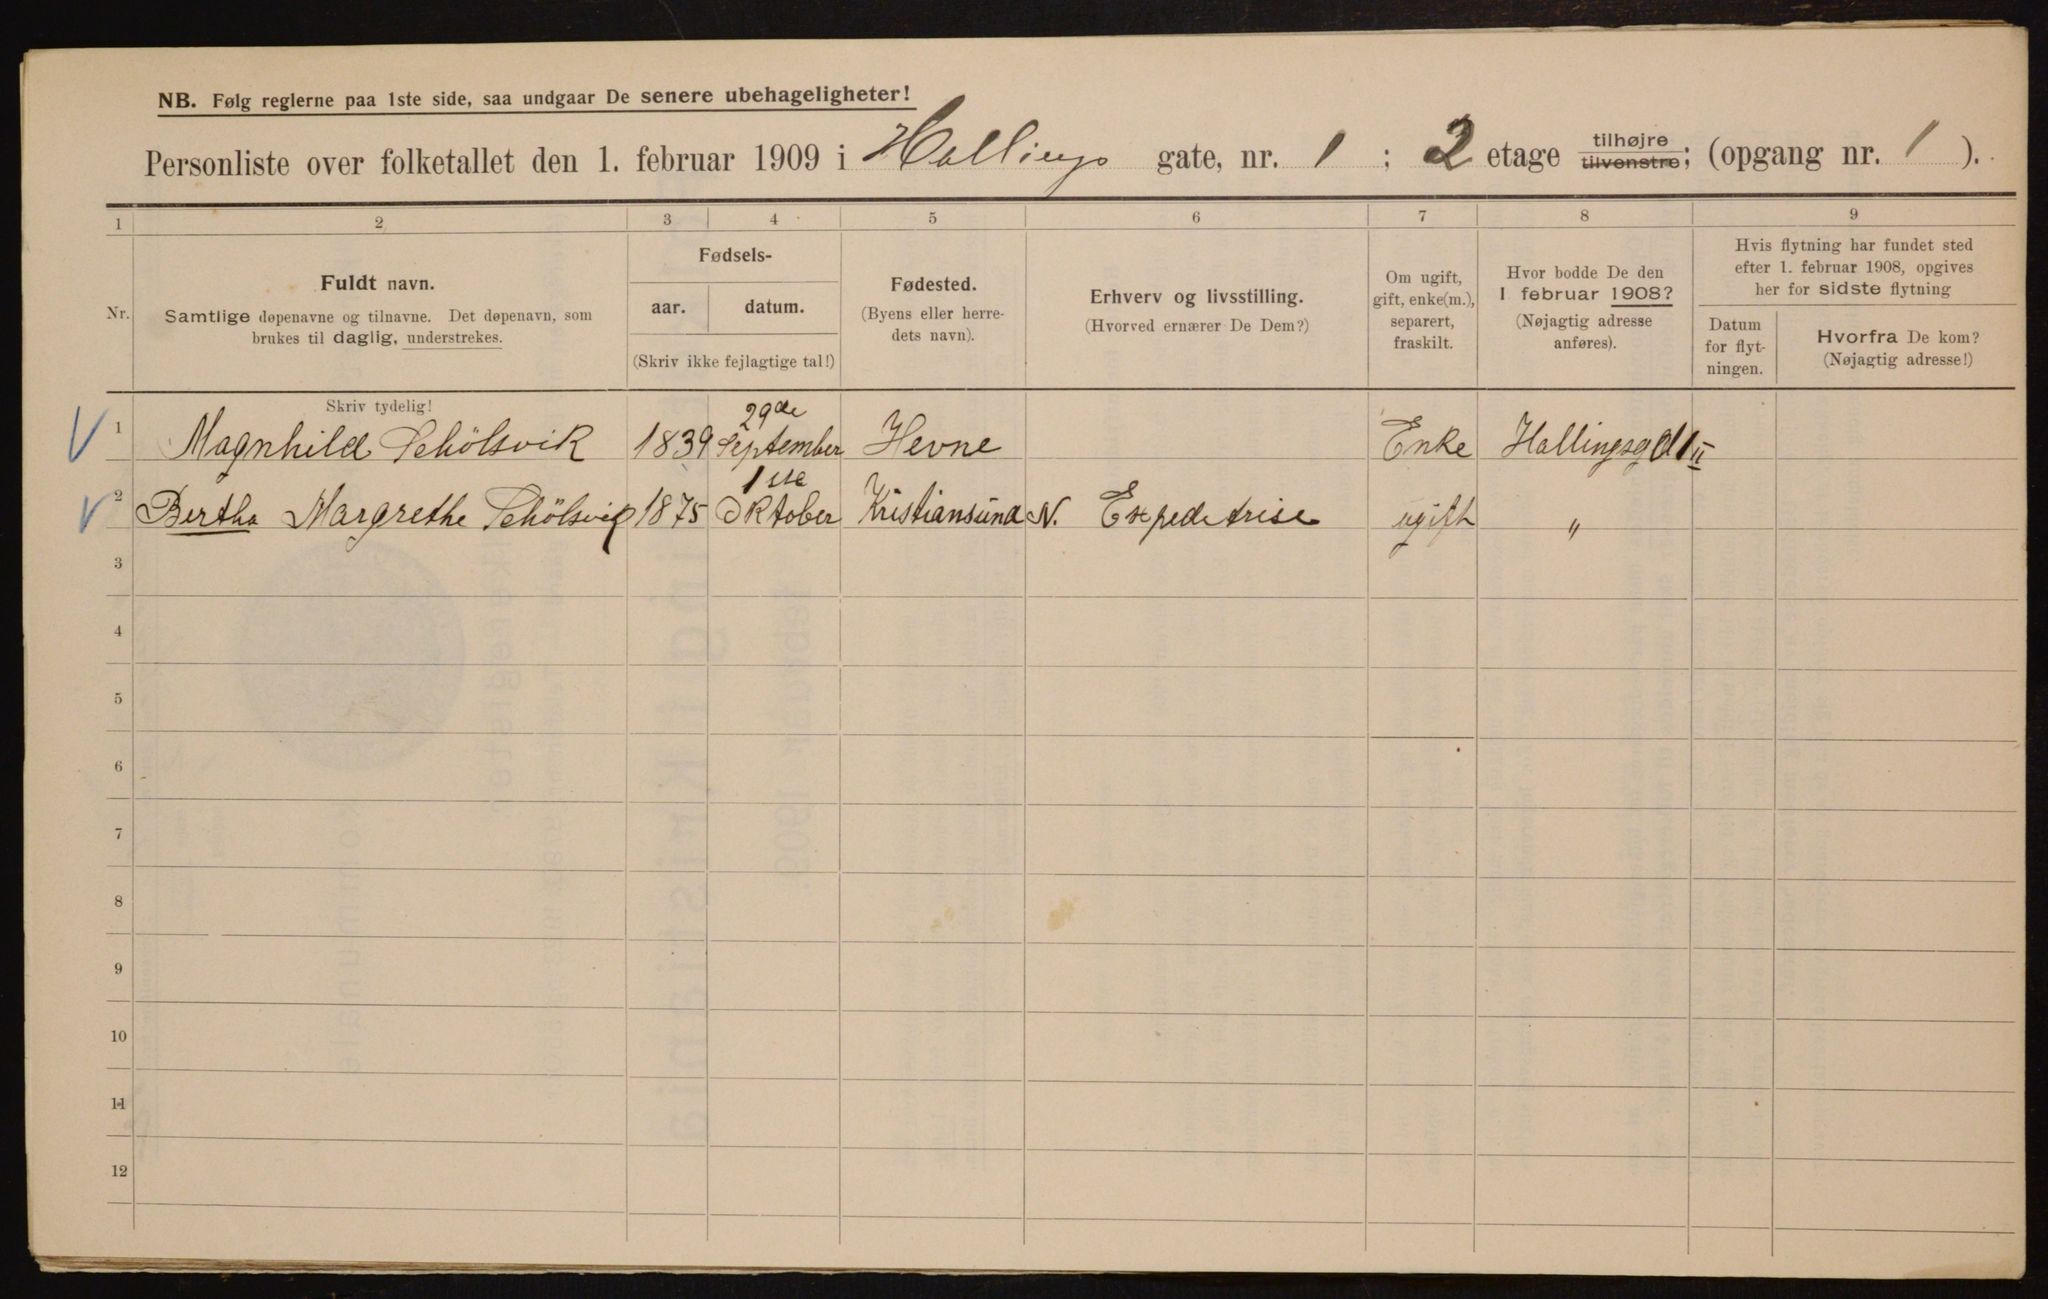 NB. Følg reglerne paa 1ste side, saa undgaar De senere ubehageligheter!
Personliste over folketallet den 1. februar 1909 i Hallings gate, nr. 1 ; 2 etage tilhøjre tilvenstre; (opgang nr. 1 ).
1 2 3 4 5 6 7 8 9
Nr.
Fuldt navn.
Samtlige døpenavne og tilnavne. Det døpenavn, som
brukes til daglig, understrekes.
Skriv tydelig!
Fødsels-
aar. datum.
(Skriv ikke fejlagtige tal!)
Fødested.
(Byens eller herre-
dets navn).
Erhverv og livsstilling.
(Hvorved ernærer De Dem?)
Om ugift,
gift, enke(m.),
separert,
fraskilt.
Hvor bodde De den
1 februar 1908?
(Nøjagtig adresse
anføres).
Hvis flytning har fundet sted
efter 1. februar 1908, opgives
her for sidste flytning
Datum
for flyt-
ningen.
Hvorfra De kom?
(Nøjagtig adresse!)
29de
V 1 Magnhild Schölsvik 1839 September Hevne Enke Hallingsgd 1 II
1ste
V 2 Bertha Margrethe Schölsvik 1875 Oktober Kristiansund N. Expedetrise ugift "
3
4
5
6
7
8
9
10
11
12